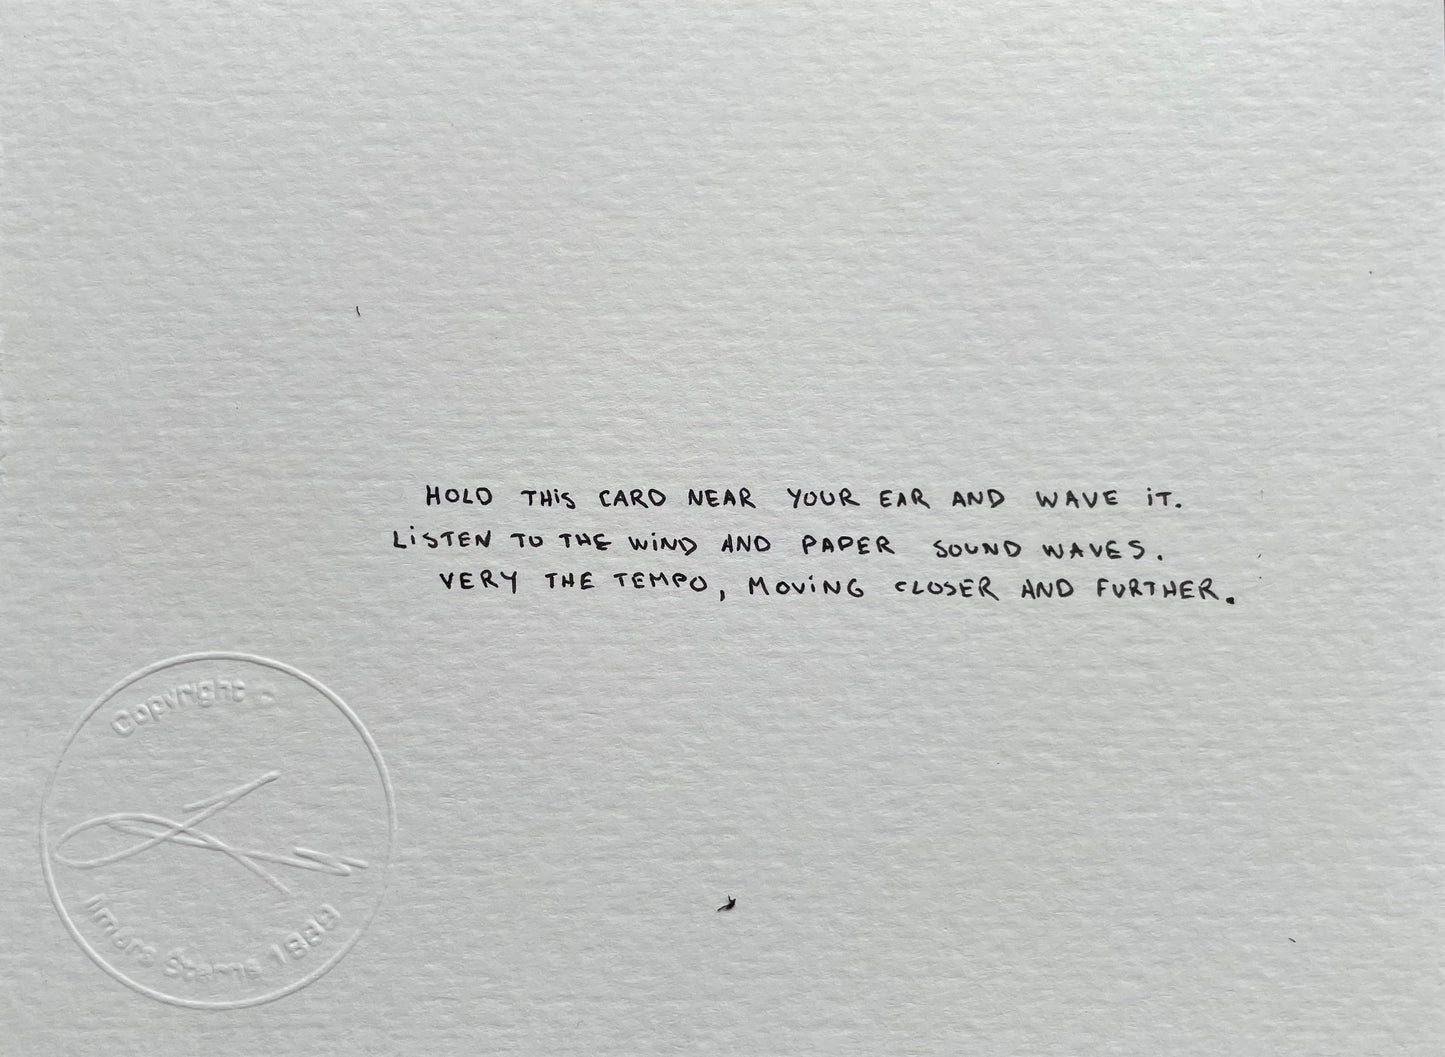 HOLD THiS CARD NEAR YOUR EAR AND WAVE iT.
LiSTEN TO THE WiND AND PAPER SOUND WAVES.
VERY THE TEMPO, MOViNG CLOSER AND FURTHER.
Copyright